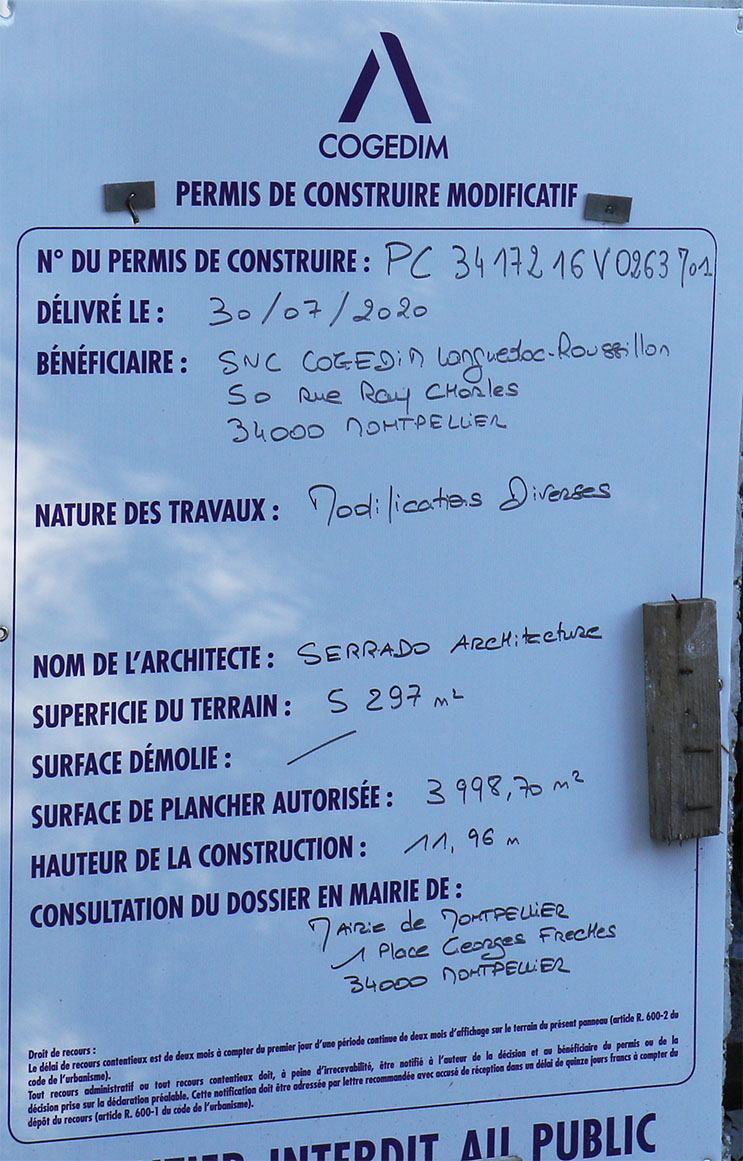 COGEDIM
PERMIS DE CONSTRUIRE MODIFICATIF
N° DU PERMIS DE CONSTRUIRE : PC 34172 16 V0263 701
DÉLIVRÉ LE : 30/07/2020
BÉNÉFICIAIRE : SNC COGEDIM Languedoc-Roussillon
50 Rue Ray CHarles
34000 MONTPELLIER
NATURE DES TRAVAUX : Modifications Diverses
NOM DE L'ARCHITECTE : SERRADO ARCHitecture
SUPERFICIE DU TERRAIN : 5 297 m²
SURFACE DÉMOLIE : /
SURFACE DE PLANCHER AUTORISÉE : 3 998,70 m²
HAUTEUR DE LA CONSTRUCTION : 11,96 m
CONSULTATION DU DOSSIER EN MAIRIE DE :
MAiRie de MONTPELLIER
1 Place Georges FRecHes
34000 MONTPELLIER
Droit de recours :
Le délai de recours contentieux est de deux mois à compter du premier jour d'une période continue de deux mois d'affichage sur le terrain du présent panneau (article R. 600-2 du
code de l'urbanisme).
Tout recours administratif ou tout recours contentieux doit, à peine d'irrecevabilité, être notifié à l'auteur de la décision et au bénéficiaire du permis ou de la
décision prise sur la déclaration préalable. Cette notification doit être adressée par lettre recommandée avec accusé de réception dans un délai de quinze jours francs à compter du
dépôt du recours (article R. 600-1 du code de l'urbanisme).
TIER INTERDIT AU PUBLIC